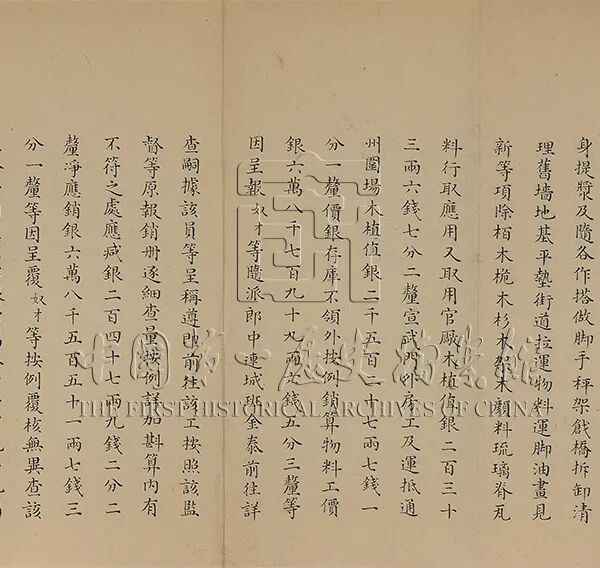 身提漿及隨各作搭做脚手秤架戧橋拆卸清
理舊墻地基平墊街道拉運物料運脚油畫見
新等項除栢木桅木杉木架木顔料琉璃脊瓦
料行取應用又取用官厰木植值銀二百三十
三兩六錢七分二釐宣武門外房工及運抵通
州圍場木植值銀二千五百二十七兩七錢一
分一釐價銀存庫不領外按例銷算物料工價
銀六萬八千七百九十九兩六錢五分三釐等
因呈報奴才等隨派郎中連城班金泰前往詳
查嗣據該員等呈稱遵即前往該工按照該監
督等原報銷册逐細查量按例詳加斟算內有
不符之處應減銀二百四十七兩九錢二分二
釐淨應銷銀六萬八千五百五十一兩七錢三
分一釐等因呈覆奴才等按例覆核無異查該
中国第一历史档案馆
THE FIRST HISTORICAL ARCHIVES OF CHINA